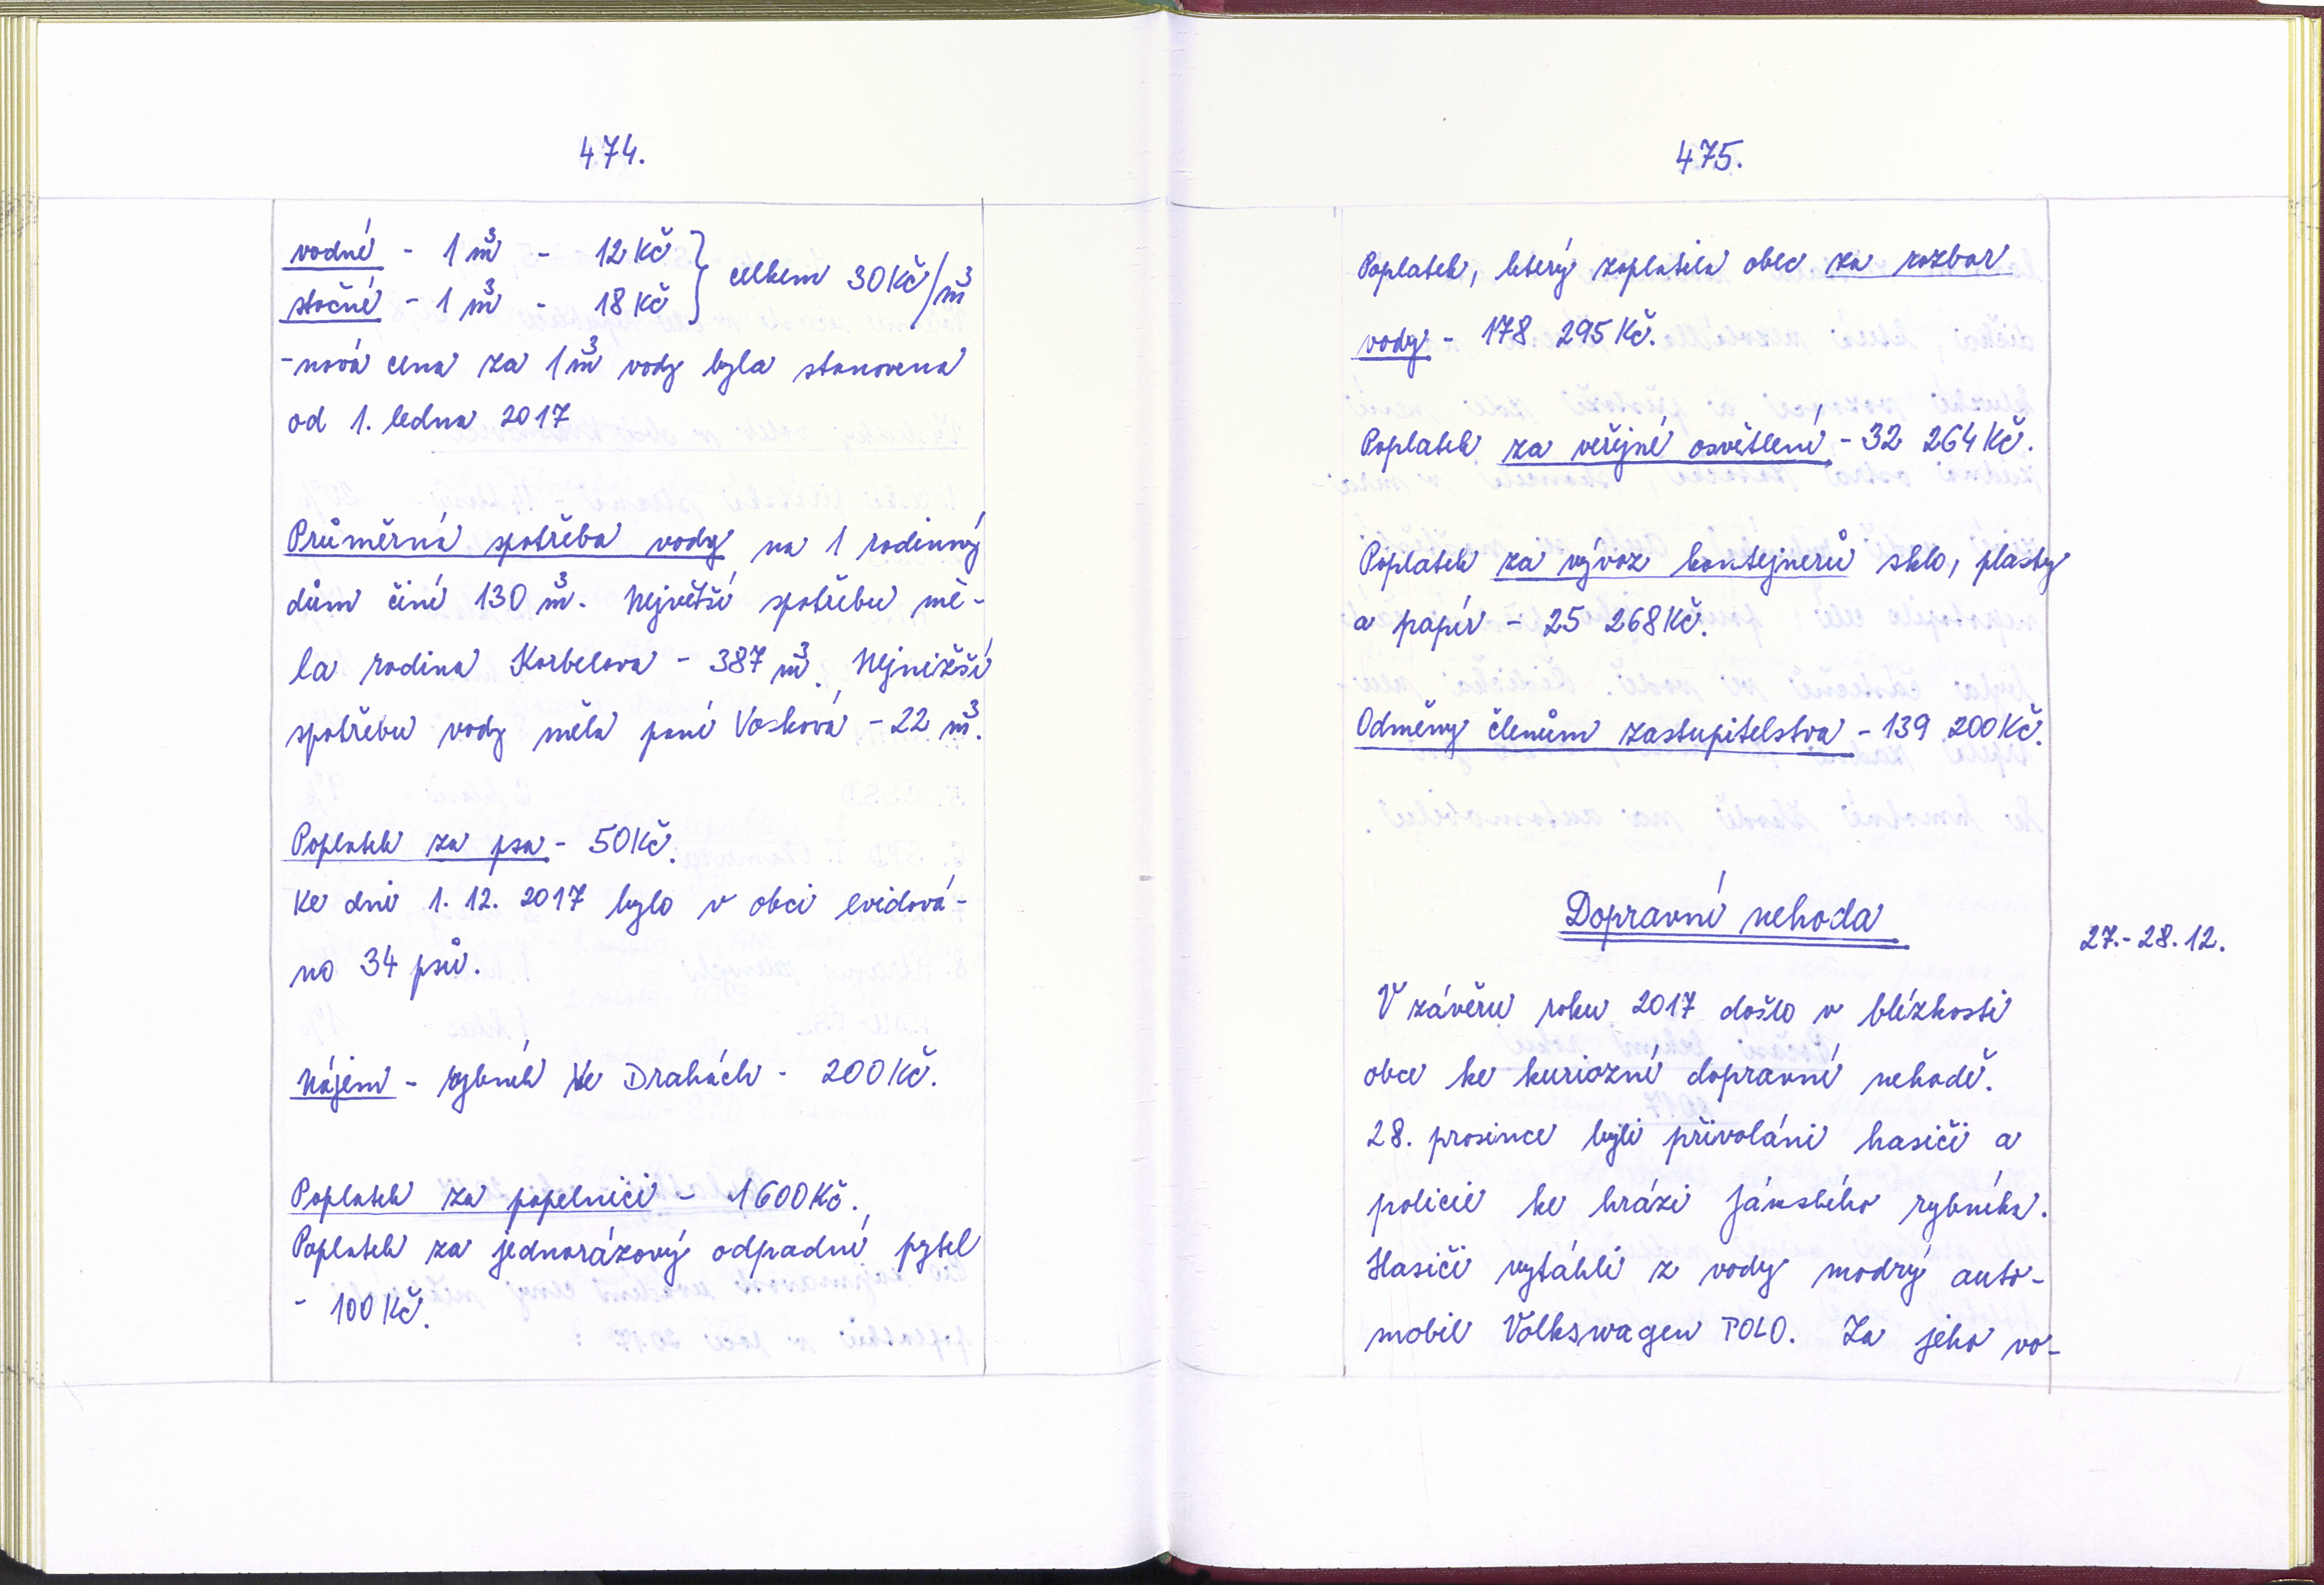 474.
vodné - 1 m³ - 12 Kč } celkem 30 Kč/m³
stočné - 1 m³ - 18 Kč
- nová cena za 1 m³ vody byla stanovena
od 1. ledna 2017
Průměrná spotřeba vody na 1 rodinný
dům činí 130 m³. Největší spotřebu mě-
la rodina Korbelova - 387 m³. Nejnižší
spotřebu vody měla paní Vosková - 22 m³.
Poplatek za psa - 50 Kč.
Ke dni 1. 12. 2017 bylo v obci evidová-
no 34 psů.
Nájem - rybník Ve Drahách - 200 Kč.
Poplatek za popelnici - 1 600 Kč.
Poplatek za jednorázový odpadní pytel
- 100 Kč.
475.
Poplatek, který zaplatila obec za rozbor
vody - 178 295 Kč.
Poplatek za veřejné osvětlení - 32 264 Kč.
Poplatek za vývoz kontejnerů sklo, plasty
a papír - 25 268 Kč.
Odměny členům zastupitelstva - 139 200 Kč.
Dopravní nehoda
27.-28.12.
V závěru roku 2017 došlo v blízkosti
obce ke kuriozní dopravní nehodě.
28. prosince byli přivoláni hasiči a
policie ke hrázi Jánského rybníka.
Hasiči vytáhli z vody modrý auto-
mobil Volkswagen POLO. Za jeho vo-